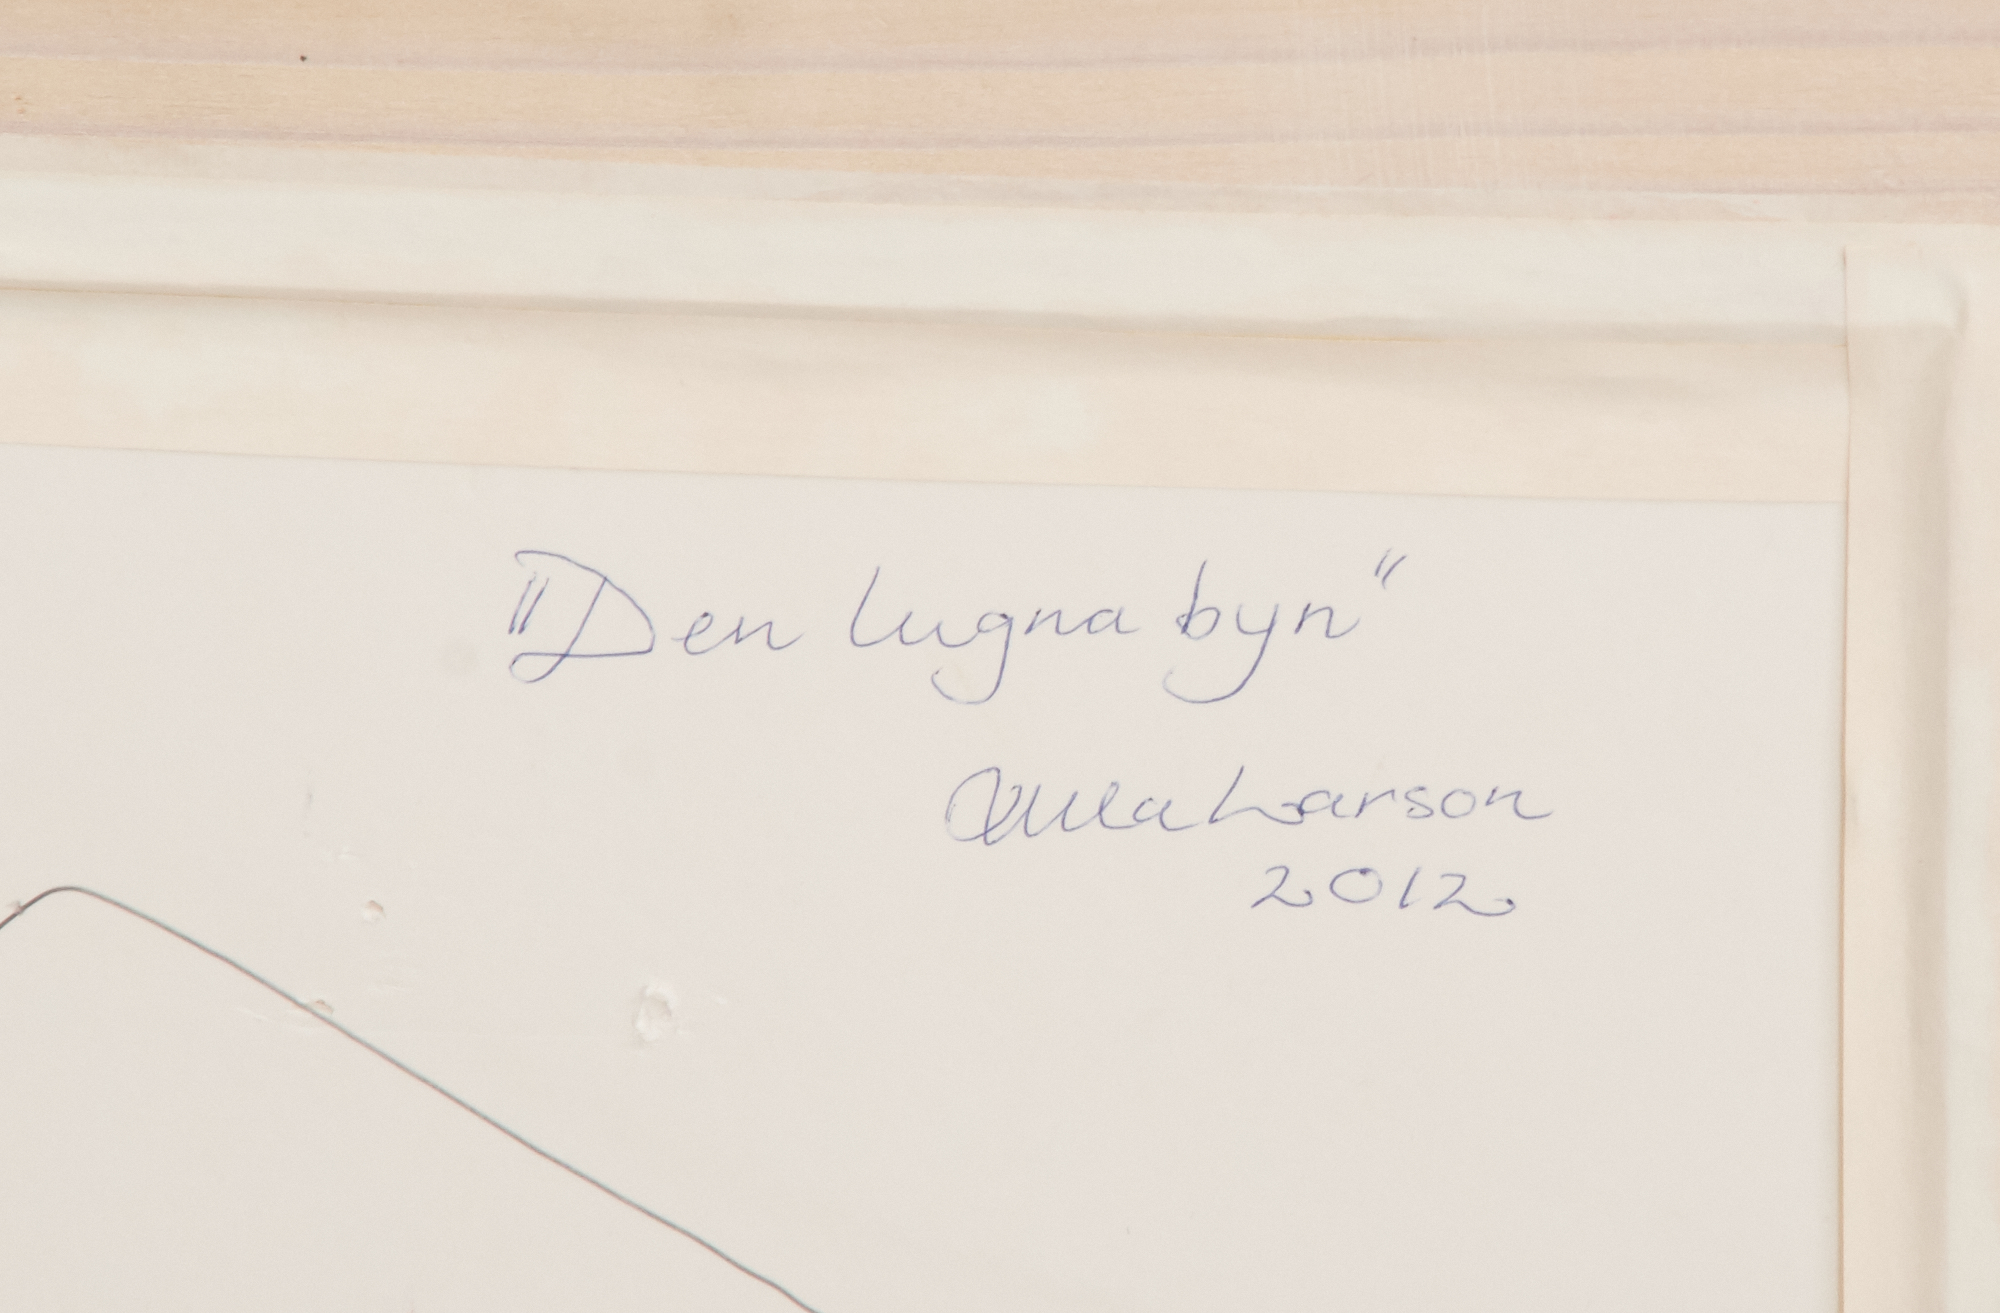 "Den lugna byn"
Ulla Larson
2012